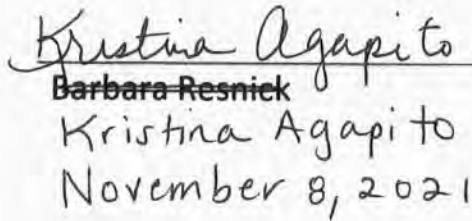 Kristina Agapito
Barbara Resnick
Kristina Agapito
November 8, 2021